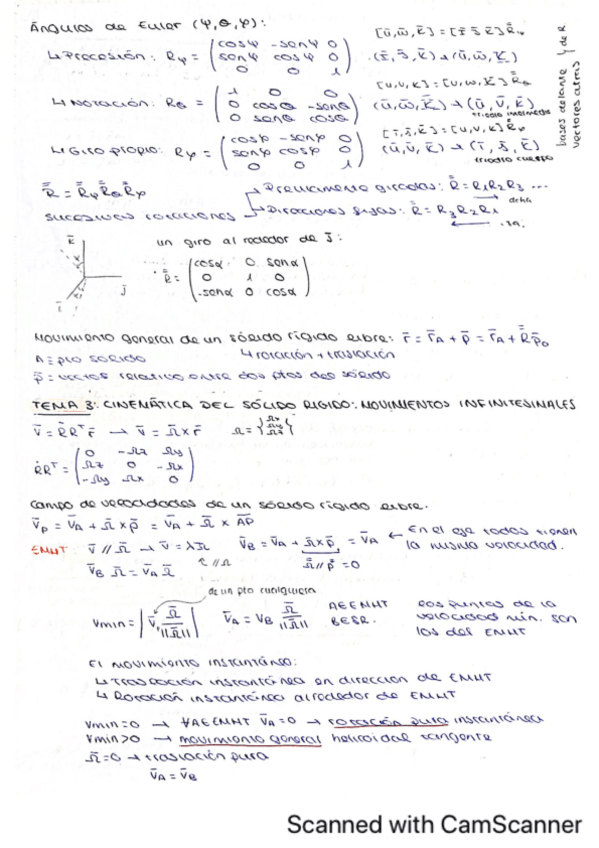 Ángulos de Euler (Ψ, θ, φ):
[ū, ω̄, K̄] = [ī J̄ K̄] R̿ψ
↳ Precesión: Rψ = (cosψ -senψ 0 / senψ cosψ 0 / 0 0 1) (ī, J̄, K̄) → (ū, ω̄, K̄)
[u, v, k] = [u, ω, K] R̿θ
↳ Nutación: Rθ = (1 0 0 / 0 cosθ -senθ / 0 senθ cosθ) (ū, ω̄, K̄) → (ū, v̄, k̄)
triedro intermedio
[ī, j̄, k̄] = [u, v, k] R̿φ
↳ Giro propio: Rφ = (cosφ -senφ 0 / senφ cosφ 0 / 0 0 1) (ū, v̄, k̄) → (ī, j̄, k̄)
triedro cuerpo
bases delante y de R
vectores atrás
R̿ = R̿ψ R̿θ R̿φ
Sucesivas rotaciones
→ Previamente giradas: R̿ = R1 R2 R3 ...
dcha
→ Direcciones fijas: R̿ = R3 R2 R1
un giro alrededor de J̄:
K̄
J̄
ī
α
R̿ = (cosα 0 senα / 0 1 0 / -senα 0 cosα)
Movimiento general de un sólido rígido libre: r̄ = r̄A + ρ̄ = r̄A + R̿ρ̄0
A ≡ pto sólido
↳ rotación + traslación
ρ̄ = vector relativo entre dos ptos del sólido
TEMA 3: CINEMÁTICA DEL SÓLIDO RÍGIDO: MOVIMIENTOS INFINITESIMALES
v̄ = ṘRᵀ r̄ → v̄ = Ω̄ × r̄ Ω = {Ωx Ωy Ωz}
ṘRᵀ = (0 -Ωz Ωy / Ωz 0 -Ωx / -Ωy Ωx 0)
Campo de velocidades de un sólido rígido libre.
v̄P = v̄A + Ω̄ × ρ̄ = v̄A + Ω̄ × AP
EMHT: v̄ // Ω̄ → v̄ = λΩ v̄B = v̄A + Ω × ρ̄ = v̄A ← En el eje todos tienen
la misma velocidad.
v̄B Ω̄ = v̄A Ω̄
// Ω
Ω̄ // ρ̄ = 0
de un pto cualquiera
vmin = |v̄, Ω̄ / ||Ω̄||| v̄A = v̄B Ω̄ / ||Ω̄||
A ∈ EMHT
B ∈ SR.
Los puntos de la
velocidad mín. son
los del EMHT
El movimiento instantáneo:
↳ Traslación instantánea en dirección de EMHT
↳ Rotación instantánea alrededor de EMHT
vmin = 0 → ∀A ∈ EMHT v̄A = 0 → rotación pura instantánea
vmin > 0 → movimiento general helicoidal tangente
Ω̄ = 0 → traslación pura
v̄A = v̄B
Scanned with CamScanner